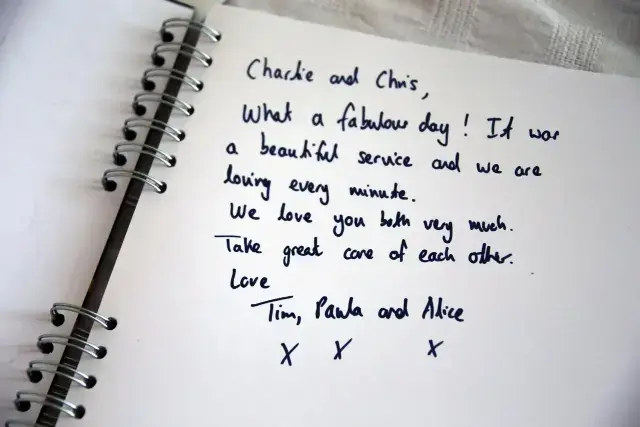 Charlie and Chris,
What a fabulous day! It was
a beautiful service and we are
loving every minute.
We love you both very much.
Take great care of each other.
Love
Tim, Paula and Alice
X X X